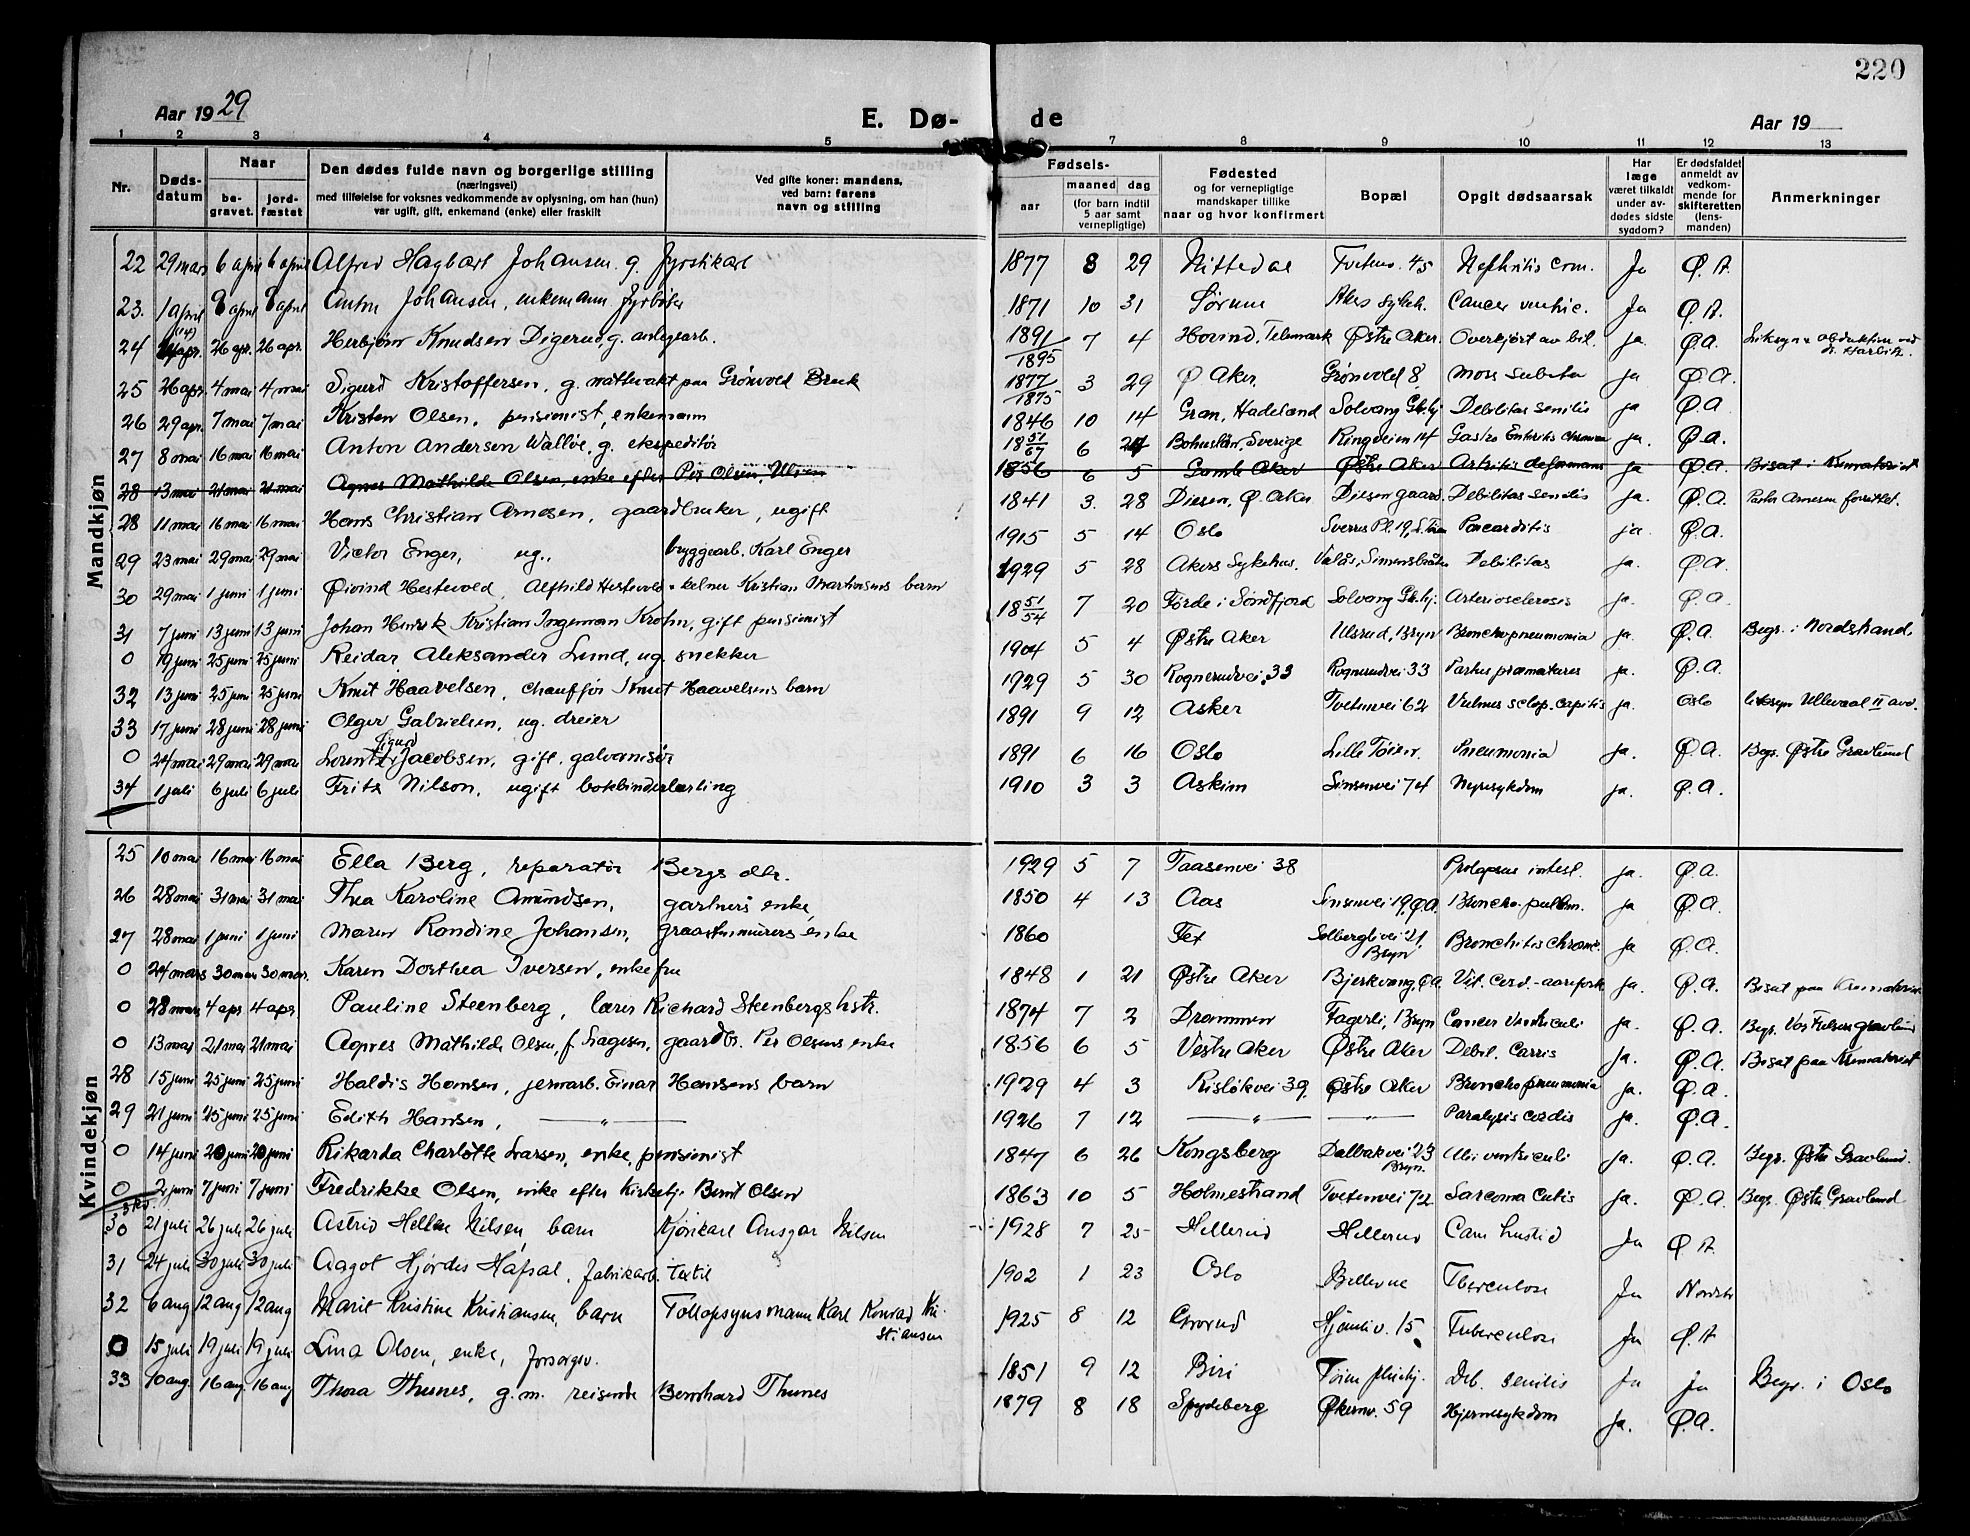 220
Aar 1929 E. Dø- de Aar 19
1 2 3 4 5 6 7 8 9 10 11 12 13
Nr. Dødsdatum Naar begravet. jordfæstet Den dødes fulde navn og borgerlige stilling (næringsvei) med tilføielse for voksnes vedkommende av oplysning, om han (hun) var ugift, gift, enkemand (enke) eller fraskilt Ved gifte koner: mandens, ved barn: farens navn og stilling Fødsels- aar maaned dag (for barn indtil 5 aar samt vernepligtige) Fødested og for vernepligtige mandskaper tillike naar og hvor konfirmert Bopæl Opgit dødsaarsak Har læge været tilkaldt under avdødes sidste sygdom? Er dødsfaldet anmeldt av vedkommende for skifteretten (lensmanden) Anmerkninger
Mandkjøn
22 29 mars 6 april 6 april Alfred Hagbart Johansen g. fyrstikarb 1877 8 29 Nittedal Tvetenv. 45 Nefhritis Crom. Ja Ø.A.
23. 1 april 8 april 8 april Anton Johansen, enkemann fyrbøter 1871 10 31 Sørum Akers sykeh. Cancer ventric. Ja Ø.A.
24 apr. 26 apr. 26 apr. Herbjørn Knudsen Digerud, g. anlegsarb. 1891/1895 7 4 Hovind, Telemark Østre Aker. Overkjørt av bil. ja. Ø.A. Liksyn + obduktion ved dr. Harbitz.
25 26 apr. 4 mai 4 mai Sigurd Kristoffersen, g. nattevakt paa Grønvold Bruk 1877/1875 3 29 Ø Aker. Grønvold 8. Mors subita ja Ø.A.
26 29 apr. 7 mai 7 mai Kristen Olsen, pensionist, enkemann 1846 10 14 Gran, Hadeland Solvang Gl.hj. Debilitas senilis ja Ø.A
27 8 mai 16 mai 16 mai Anton Andersen Walløe, g. ekspeditør 18 51/67 6 24 Bohuslän, Sverige Ringveien 14 Gastro Enteritis chronica ja. Ø.A.
28 13 mai 21 mai 21 mai Agnes Mathilde Olsen, enke efter Per Olsen, Ulven 1856 6 5 Gamle Aker Østre Aker Artritis deformans ja Ø.A. Bisat i Krematoriet
28 11 mai 16 mai 16 mai Hans Christian Arnesen, gaardbruker, ugift 1841 3. 28 Disen, Ø. Aker Disen gaard Debilitas senilis ja. Ø.A. Pastor Arnesen forrettet.
29 23 mai 29 mai 29 mai Victor Enger, ug., bryggearb. Karl Enger 1915 5 14 Oslo Sverres Pl. 19, Pancarditis ja. Ø.A.
30 29 mai 1 juni 1 juni Øivind Hestevold, Alfhild Hestevold + kelner Kristian Martinsens barn 1929 5 28 Akers Sykehus. Valås, Simensbråten Debilitas ja. Ø.A.
31 7 juni 13 juni 13 juni Johan Henrik Kristian Ingeman Krohn, gift pensionist 18 51/54 7 20 Førde i Søndfjord Solvang Gl.hj. Arteriosclerosis ja. Ø.A.
0 19 juni 25 juni 25 juni Reidar Aleksander Lund, ug. snekker 1904 5 4 Østre Aker Ulsrud, Bryn Bronchopneumonia ja. Ø.A. Begr. i Nordstrand.
32 13 juni 25 juni 25 juni Knut Haavelsen, chauffør Knut Haavelsens barn 1929 5 30 Rognerudvei 33 Rognerudvei 33 Partus præmaturus ja. Ø.A.
33 17 juni 28 juni 28 juni Olger Gabrielsen, ug. dreier 1891 9 12 Asker Tvetenvei 62 Vulnus sclop. capitis ja. Oslo liksyn Ullevaal II avd.
0 24 mai 29 mai 29 mai Lorentz Sigurd Jacobsen, gift, galvanisør 1891 6 16 Oslo Lille Tøien. Pneumonia ja. Ø.A. Begr. Østre Gravlund
34 1 juli 6 juli 6 juli Frits Nilson, ugift bokbinderlærling 1910 3 3 Askim Sinsenvei 74 Nyresykdom ja. Ø.A.
Kvindekjøn
25 10 mai 16 mai 16 mai Ella Berg, reparatør Bergs dtr. 1929 5 7 Taasenvei 38 Prolapsus intest. ja. Ø.A.
26 28 mai 31 mai 31 mai Thea Karoline Amundsen, gartners enke 1850 4 13 Aas Sinsenvei 19, Ø.A. Broncho-pulm. ja Ø.A.
27 28 mai 1 juni 1 juni Maren Randine Johansen, graastensmurers enke 1860 Fet Solberglivei 21, Bryn Bronchitis chron. ja Ø.A.
0 24 mars 30 mars 30 mar. Karen Dorthea Iversen, enkefru 1848 1 21 Østre Aker Bjerkvang, Ø.A. Vit. Cord.-aarefork. ja. Ø.A. Bisat paa Krematoriet
0 28 mars 4 apr 4 apr Pauline Steenberg, lærer Richard Steenbergs hstr. 1874 7 2 Drammen Fagerli, Bryn Cancer Ventriculi ja. Ø.A. Begr. Vor Frelsers gravlund
0 13 mai 21 mai 21 mai Agnes Mathilde Olsen, f. Hagesen, gaardbr. Per Olsens enke 1856 6 5 Vestre Aker Østre Aker Debil. Cordis ja. Ø.A. Bisat paa Krematoriet
28 15 juni 25 juni 25 juni Haldis Hansen, jernarb. Einar Hansens barn 1929 4 3 Risløkvei 39, Østre Aker Bronchopneumonia ja. Ø.A.
29 21 juni 25 juni 25 juni Edith Hansen, — " — 1926 7 12 — " — — " — Paralysis cordis ja. Ø.A.
0 14 juni 20 juni 20 juni Rikarda Charlotte Larsen, enke, pensionist 1847 6 26 Kongsberg Dalbakvei 23 Bryn. Ulc. ventriculi ja. Ø.A. Begr. Østre Gravlund.
0 2 juni 7 juni 7 juni Fredrikke Olsen, enke efter Kirketj. Bernt Olsen 1863 10 5 Holmestrand Tvetenvei 72 Sarcoma Cutis ja. Ø.A. Begr. Østre Gravlund
30 21 juli 26 juli 26 juli Astrid Hellen Nilsen barn Kjørekarl Ansgar Nilsen 1928 7 25 Hellerud Hellerud Ja Ø.A.
31 24 juli 30 juli 30 juli Aagot Hjørdis Hafsal, fabrikarb. Textil 1902 1 23 Oslo Bellevue Tberculose Ja Nordstr
32 6 aug 12 aug 12 aug Marit Kristine Kristiansen, barn Tollopsynsmann Karl Konrad Kristiansen 1925 8 12 Grorud Hjemliv. 15 Tuberculose Ja Ø.A
0 15 juli 19 juli 19 juli Lina Olsen, enke, forsørgev. 1851 9 12 Biri Tøien pleiehj. Deb. senilis Ja ja Begr. i Oslo
33 10 aug. 16 aug. 16 aug Thora Thunes, g.m. reisende Bernhard Thunes 1879 8 18 Spydeberg Økernv. 59 Hjernesykdom Ja. Ø.A.